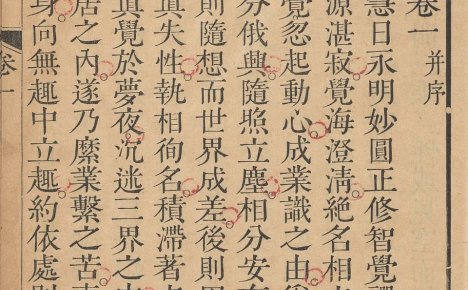 卷一 并序
慧日永明妙圓正修智覺禪
源湛寂覺海澄清絕名相
覺忽起動心成業識之由
分俄興隨照立塵相分安
則隨想而世界成差後則因
眞失性執相徇名積滯著
眞覺於夢夜沉迷三界之
居之內遂乃縻業繫之苦
身向無趣中立趣約依處則
卷一